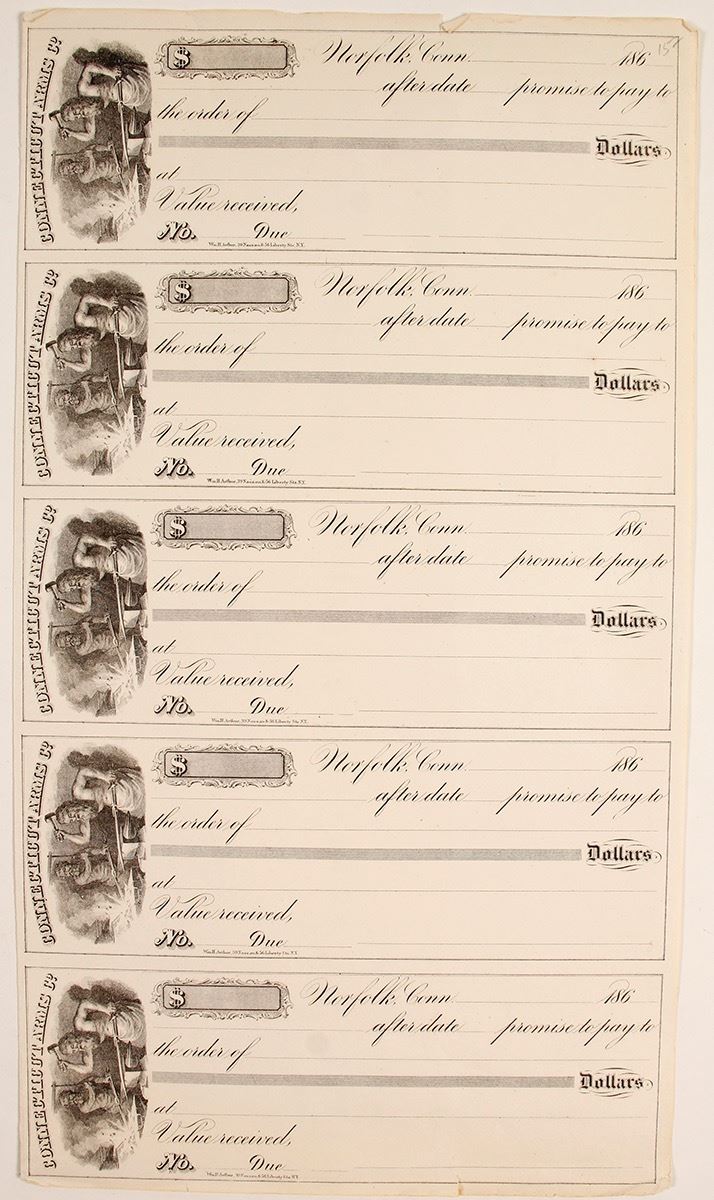 CONNECTICUT ARMS Co.
$ Norfolk, Conn. 186
15
after date promise to pay to
the order of
Dollars
at
Value received,
No. Due
Wm. H. Arthur, 39 Nassau & 56 Liberty Sts. N.Y.
CONNECTICUT ARMS Co.
$ Norfolk, Conn. 186
after date promise to pay to
the order of
Dollars
at
Value received,
No. Due
Wm. H. Arthur, 39 Nassau & 56 Liberty Sts. N.Y.
CONNECTICUT ARMS Co.
$ Norfolk, Conn. 186
after date promise to pay to
the order of
Dollars
at
Value received,
No. Due
Wm. H. Arthur, 39 Nassau & 56 Liberty Sts. N.Y.
CONNECTICUT ARMS Co.
$ Norfolk, Conn. 186
after date promise to pay to
the order of
Dollars
at
Value received,
No. Due
Wm. H. Arthur, 39 Nassau & 56 Liberty Sts. N.Y.
CONNECTICUT ARMS Co.
$ Norfolk, Conn. 186
after date promise to pay to
the order of
Dollars
at
Value received,
No. Due
Wm. H. Arthur, 39 Nassau & 56 Liberty Sts. N.Y.